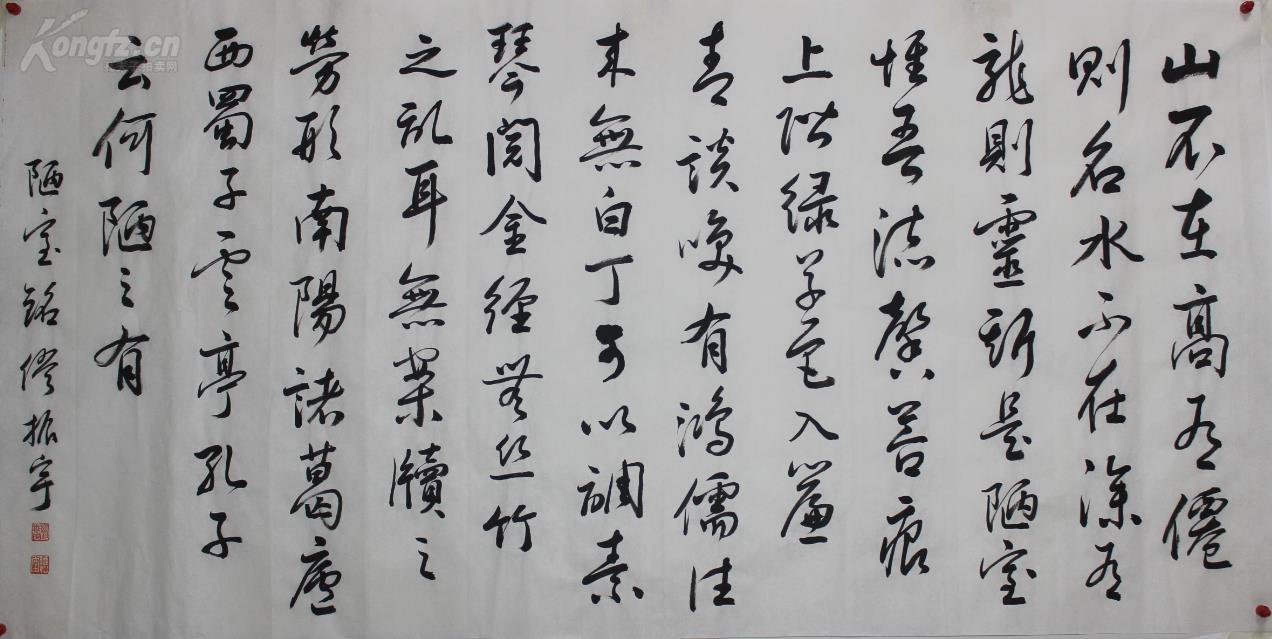 山不在高有僊
則名水不在深有
龍則靈斯是陋室
惟吾德馨苔痕
上階緑草色入簾
青談咲有鴻儒往
来無白丁可以調素
琴閲金經無丝竹
之乱耳無案牘之
勞形南陽諸葛廬
西蜀子雲亭孔子
云何陋之有
陋室銘 振宇
Kongfz.cn
孔夫子拍卖网